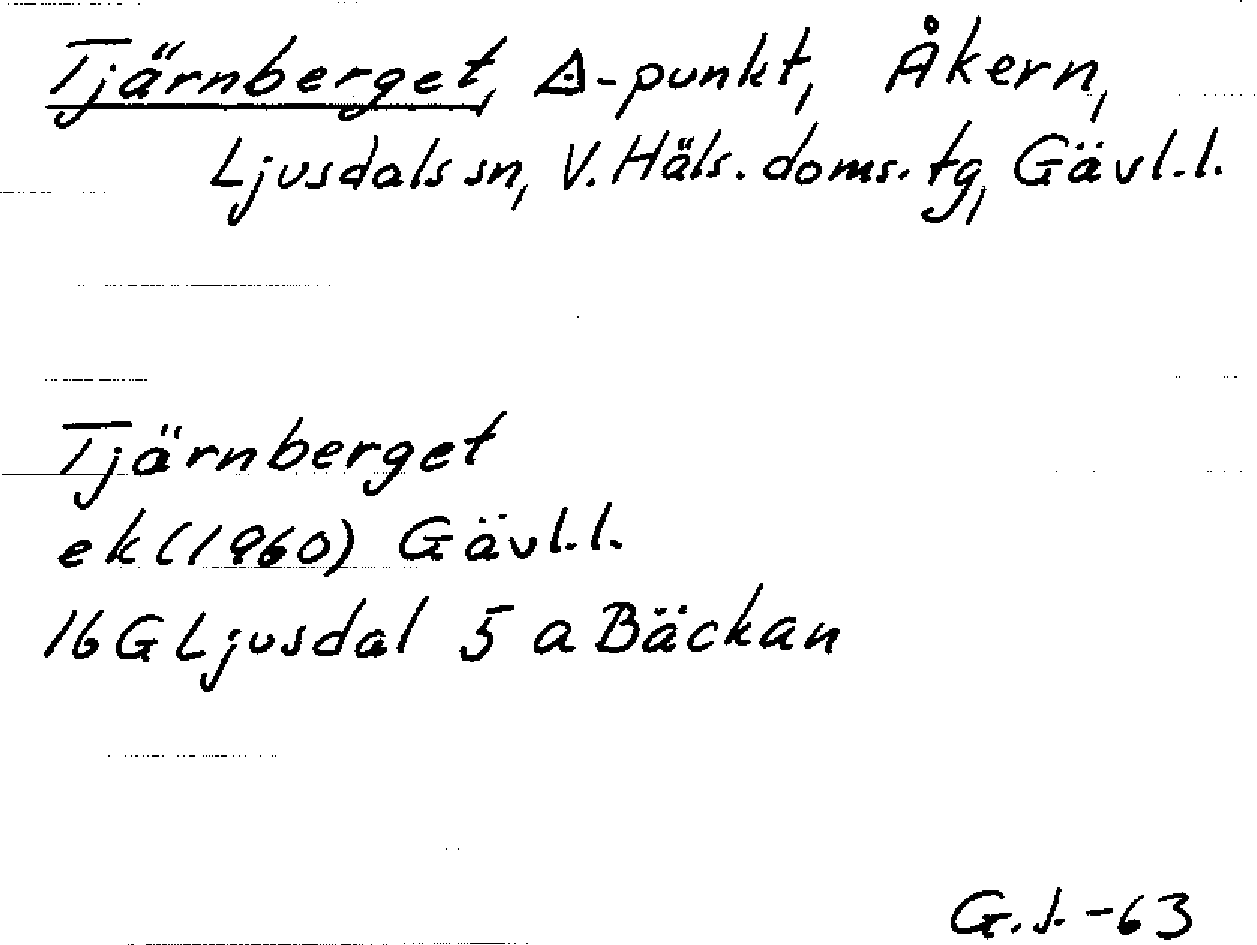 Tjärnberget, △-punkt, Åkern,
Ljusdals sn, V. Häls. doms. tg, Gävl. l.
Tjärnberget
ek (1960) Gävl. l.
16 G Ljusdal 5 a Bäckan
-63